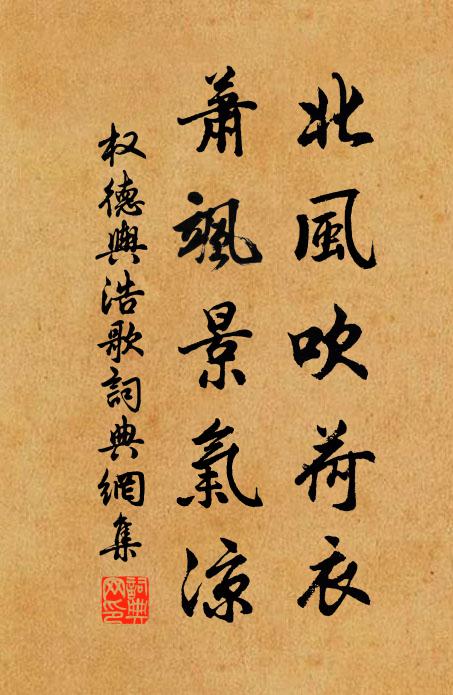 北風吹荷衣
蕭颯景氣涼
权德輿浩歌詞典網集
詞典网印